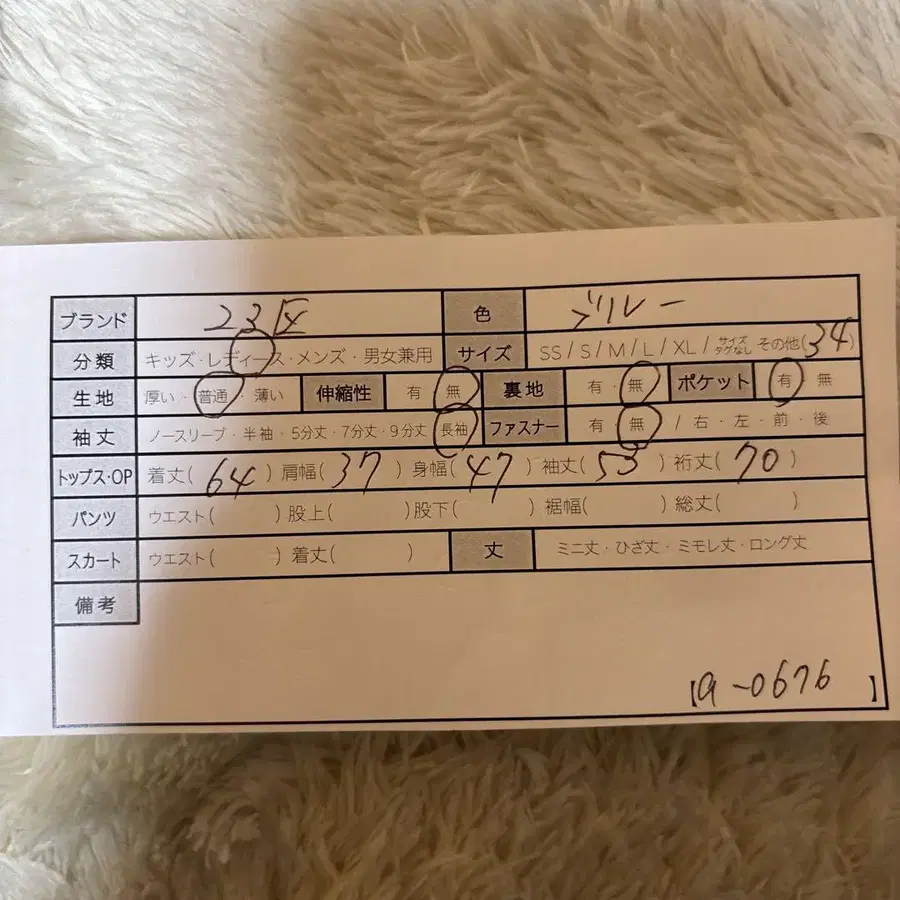 ブランド 23区 色 ブルー
分類 キッズ・レディース・メンズ・男女兼用 サイズ SS / S / M / L / XL / サイズタグなし その他(34)
生地 厚い・普通・薄い 伸縮性 有・無 裏地 有・無 ポケット 有・無
袖丈 ノースリーブ・半袖・5分丈・7分丈・9分丈・長袖 ファスナー 有・無 / 右・左・前・後
トップス・OP 着丈(64) 肩幅(37) 身幅(47) 袖丈(53) 裄丈(70)
パンツ ウエスト( ) 股上( ) 股下( ) 裾幅( ) 総丈( )
スカート ウエスト( ) 着丈( ) 丈 ミニ丈・ひざ丈・ミモレ丈・ロング丈
備考
【a-0676 】